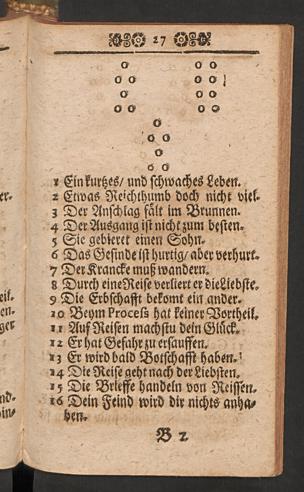 17
1 Ein kurtzes/ und schwaches Leben.
2 Etwas Reichthumb doch nicht viel.
3 Der Anschlag fält im Brunnen.
4 Der Ausgang ist nicht zum besten.
5 Sie gebieret einen Sohn.
6 Das Gesinde ist hurtig/ aber verhurt.
7 Der Krancke muß wandern.
8 Durch eine Reise verliert er die Liebste.
9 Die Erbschafft bekomt ein ander.
10 Beym Proceß hat keiner Vortheil.
11 Auf Reisen machstu dein Glück.
12 Er hat Gefahr zu ersauffen.
13 Er wird bald Botschafft haben.
14 Die Reise geht nach der Liebsten.
15 Die Brieffe handeln von Reissen.
16 Dein Feind wird dir nichts anha-
ben.
B 2